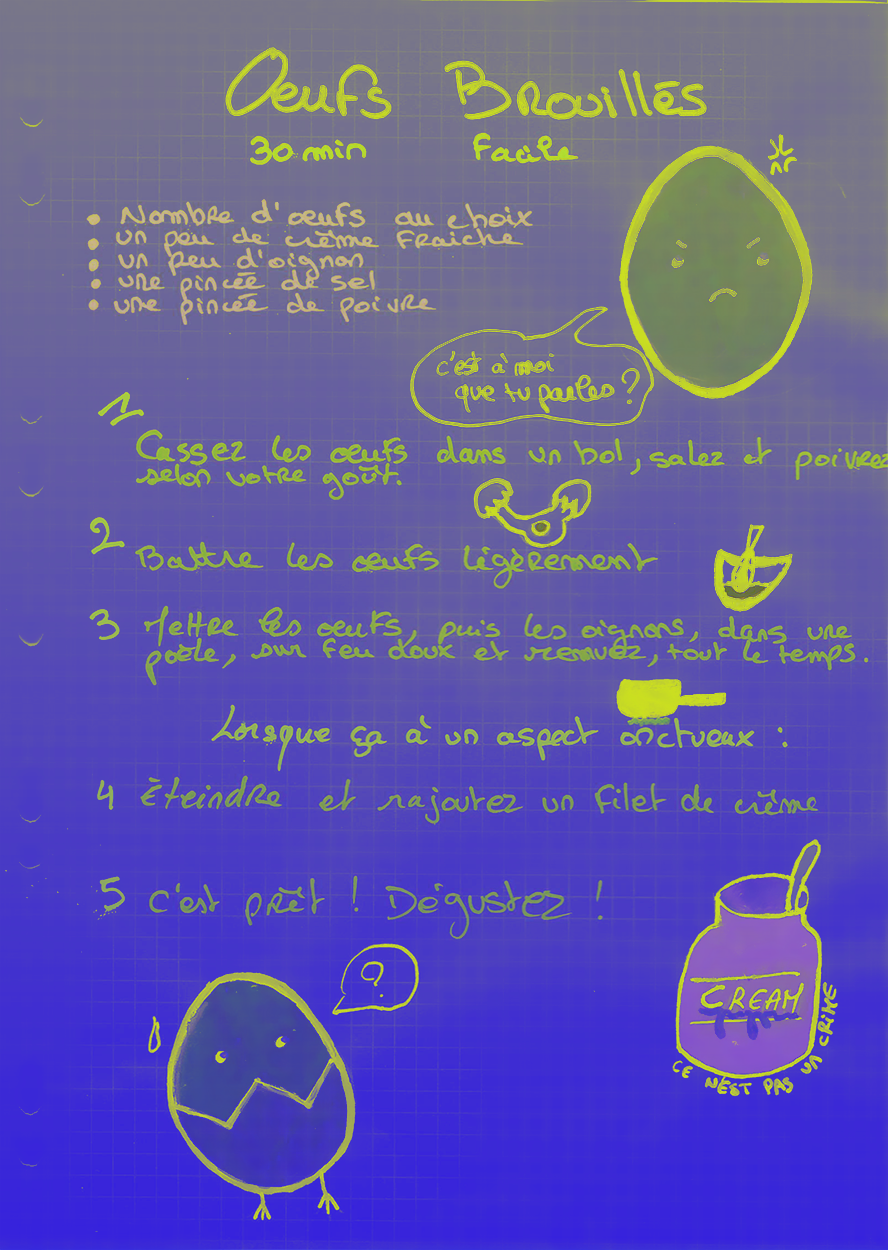 Oeufs Brouillés
30 min Facile
• Nombre d'oeufs au choix
• un peu de crème fraiche
• un peu d'oignon
• une pincée de sel
• une pincée de poivre
c'est à moi
que tu parles ?
1
Cassez les oeufs dans un bol, salez et poivrez
selon votre goût.
2 Battre les oeufs légèrement
3 Mettre les oeufs, puis les oignons, dans une
poêle, sur feu doux et remuez, tout le temps.
Lorsque ça à un aspect onctueux :
4 Éteindre et rajoutez un filet de crème
5 C'est prêt ! Dégustez !
?
CREAM
CE N'EST PAS UN CRIME